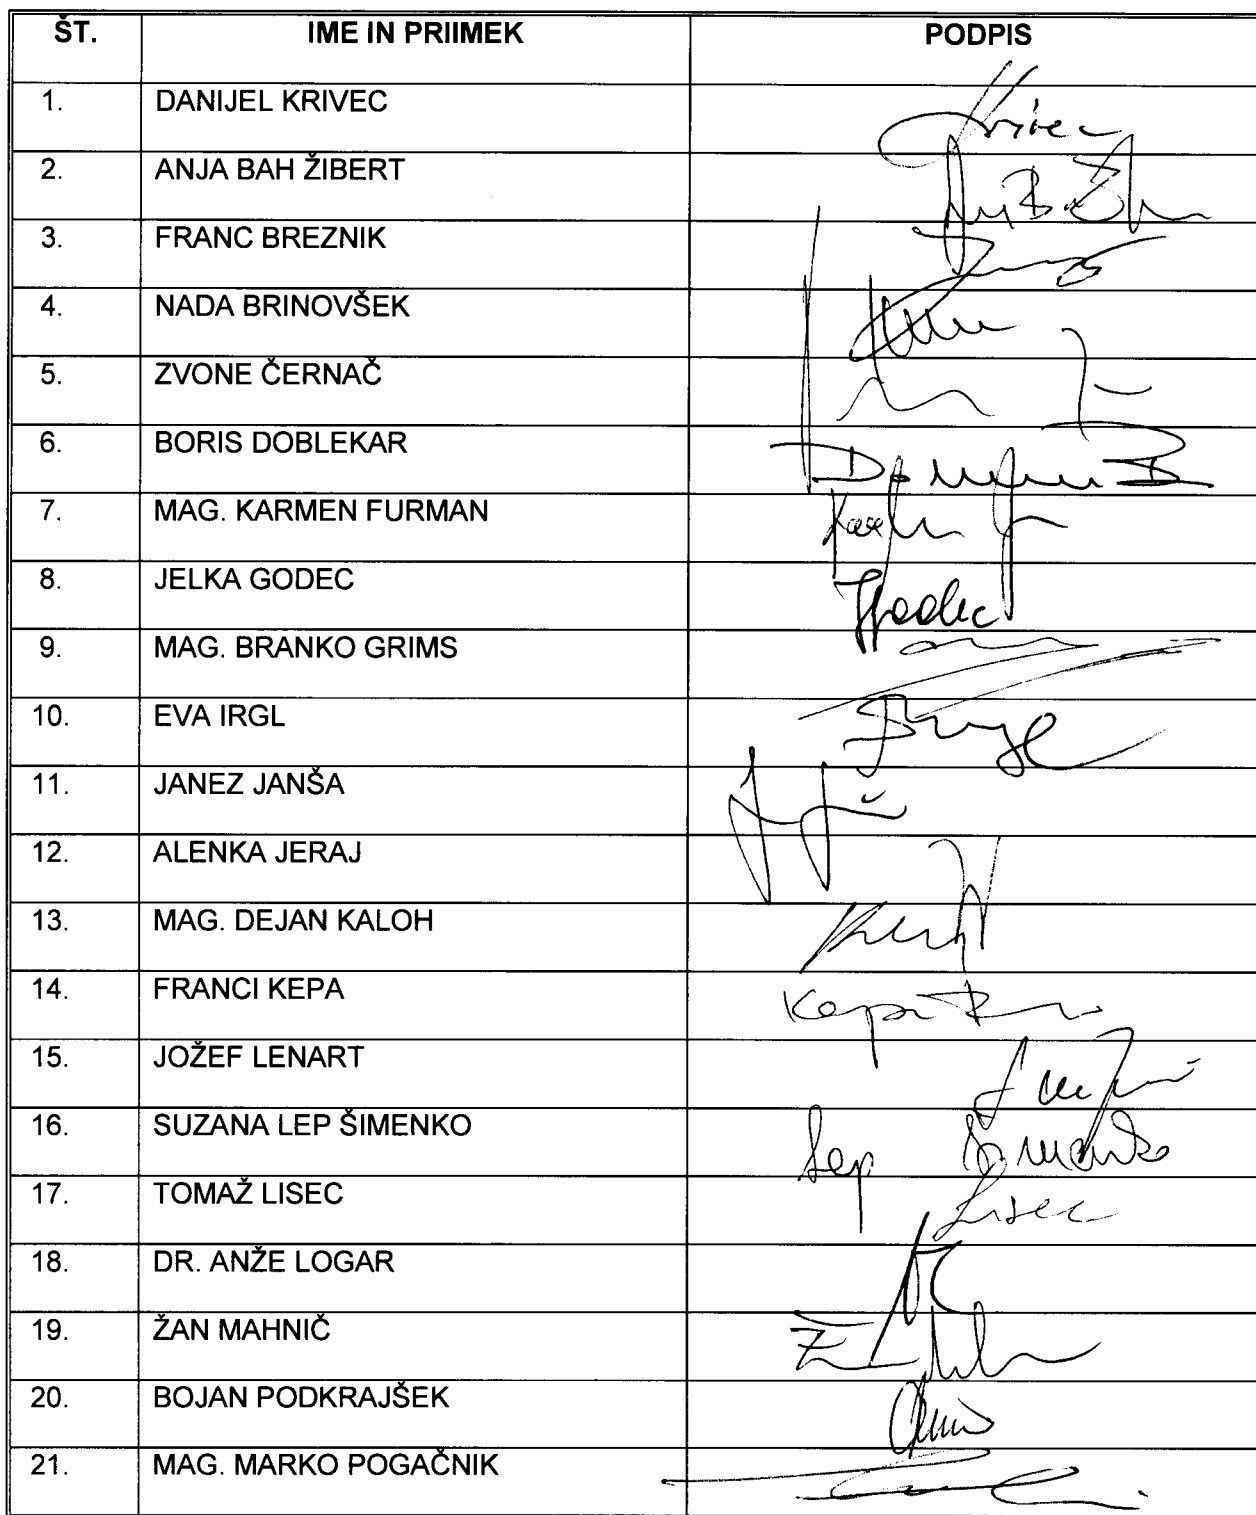 ŠT. IME IN PRIIMEK PODPIS
1. DANIJEL KRIVEC Krivec
2. ANJA BAH ŽIBERT
3. FRANC BREZNIK
4. NADA BRINOVŠEK
5. ZVONE ČERNAČ
6. BORIS DOBLEKAR
7. MAG. KARMEN FURMAN
8. JELKA GODEC JGodec
9. MAG. BRANKO GRIMS
10. EVA IRGL
11. JANEZ JANŠA
12. ALENKA JERAJ
13. MAG. DEJAN KALOH
14. FRANCI KEPA Kepa
15. JOŽEF LENART
16. SUZANA LEP ŠIMENKO Lep Šimenko
17. TOMAŽ LISEC Lisec
18. DR. ANŽE LOGAR
19. ŽAN MAHNIČ
20. BOJAN PODKRAJŠEK
21. MAG. MARKO POGAČNIK